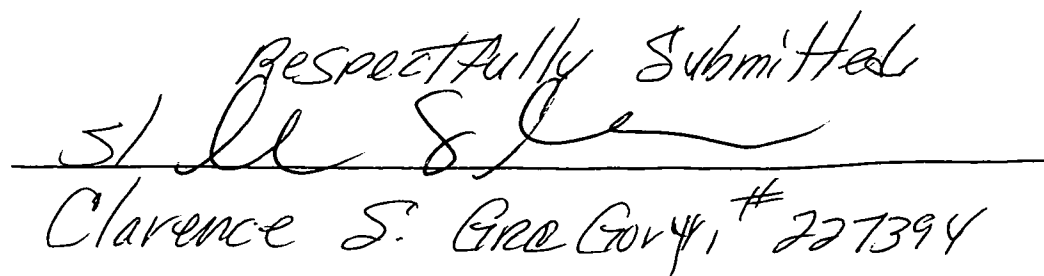 Respectfully Submitted
s/
Clarence S. Gregory, #227394